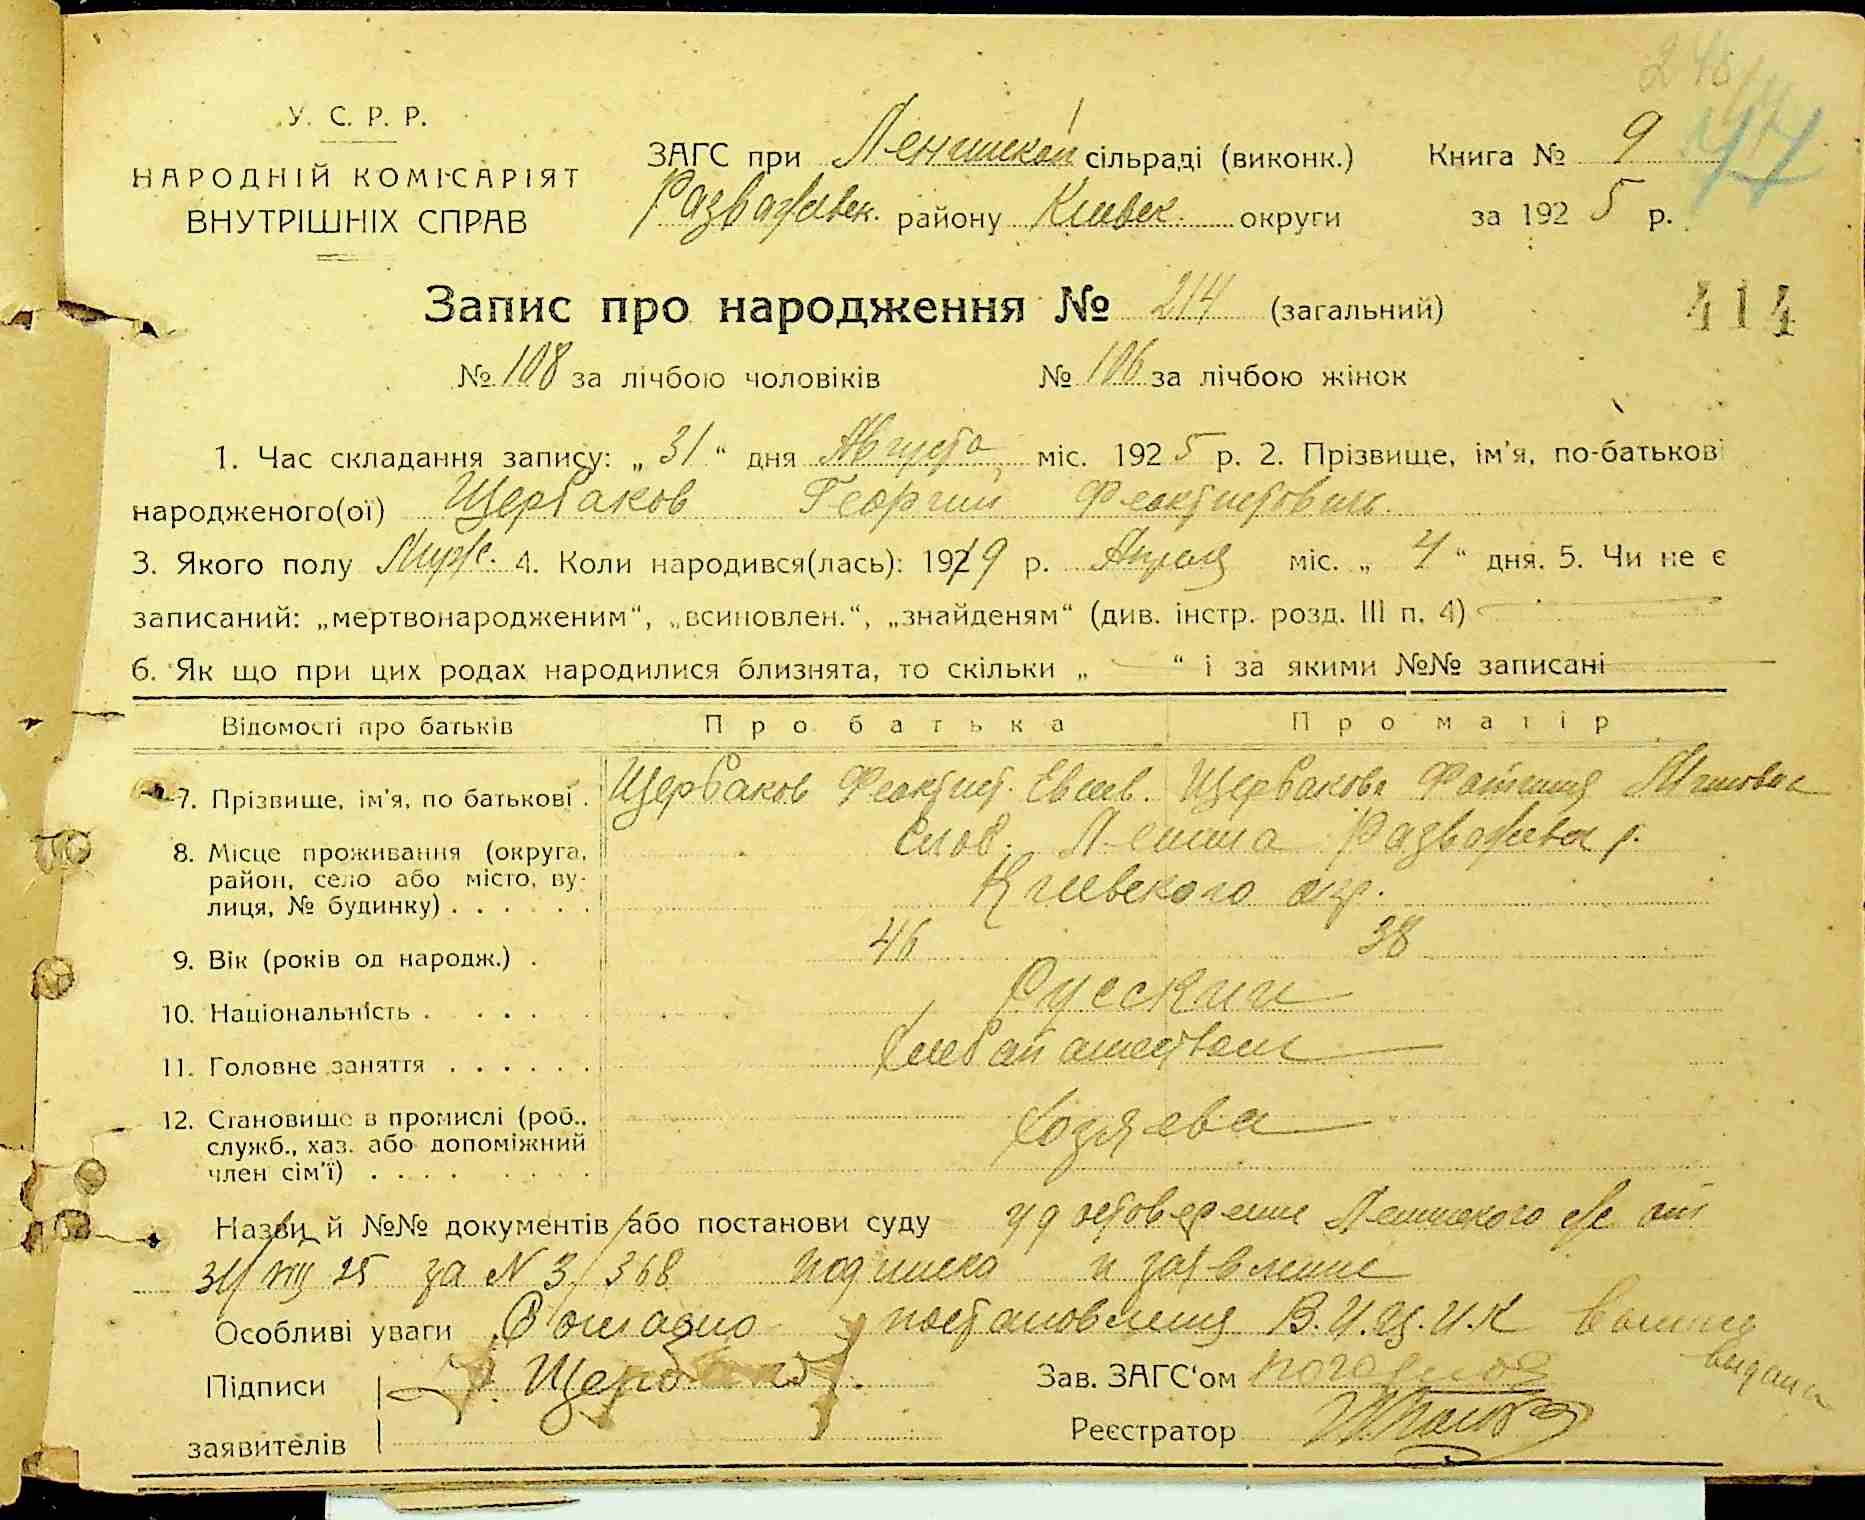 248
У. С. Р. Р.
НАРОДНІЙ КОМІСАРІЯТ
ВНУТРІШНІХ СПРАВ
ЗАГС при Ленинской сільраді (виконк.) Книга № 9
Разважевск. району Киевск. округи за 1925 р.
Запис про народження № 214 (загальний)
414
№ 108 за лічбою чоловіків № 106 за лічбою жінок
1. Час складання запису: „31“ дня Августа міс. 1925 р. 2. Прізвище, ім'я, по-батькові
народженого(ої) Щербаков Георгий Феоктистович
3. Якого полу Муж. 4. Коли народився(лась): 1919 р. Апреля міс. „4“ дня. 5. Чи не є
записаний: „мертвонародженим“, „всиновлен.“, „знайденям“ (див. інстр. розд. III п. 4)
6. Як що при цих родах народилися близнята, то скільки „ “ і за якими №№ записані
Відомості про батьків Про батька Про матір
7. Прізвище, ім'я, по батькові . Щербаков Феоктист. Евсив. Щербакова
8. Місце проживання (округа, район, село або місто, вулиця, № будинку) . . . . . . Слоб. Ленина Разважева р.
Киевского окр.
9. Вік (років од народж.) . 46 38
10. Національність . . . . . Русский
11. Головне заняття . . . . . . Хлебопашеством
12. Становище в промислі (роб., служб., хаз. або допоміжний член сім'ї) . . . . Хозяева
Назви й №№ документів або постанови суду удостоверение Ленинского с/с от
31/VIII 25 за N 3/368 подписка и заявление
Особливі уваги Согласно постановления В.У.Ц.И.К
выдана
Підписи Щербаков Зав. ЗАГС'ом
заявителів Реєстратор